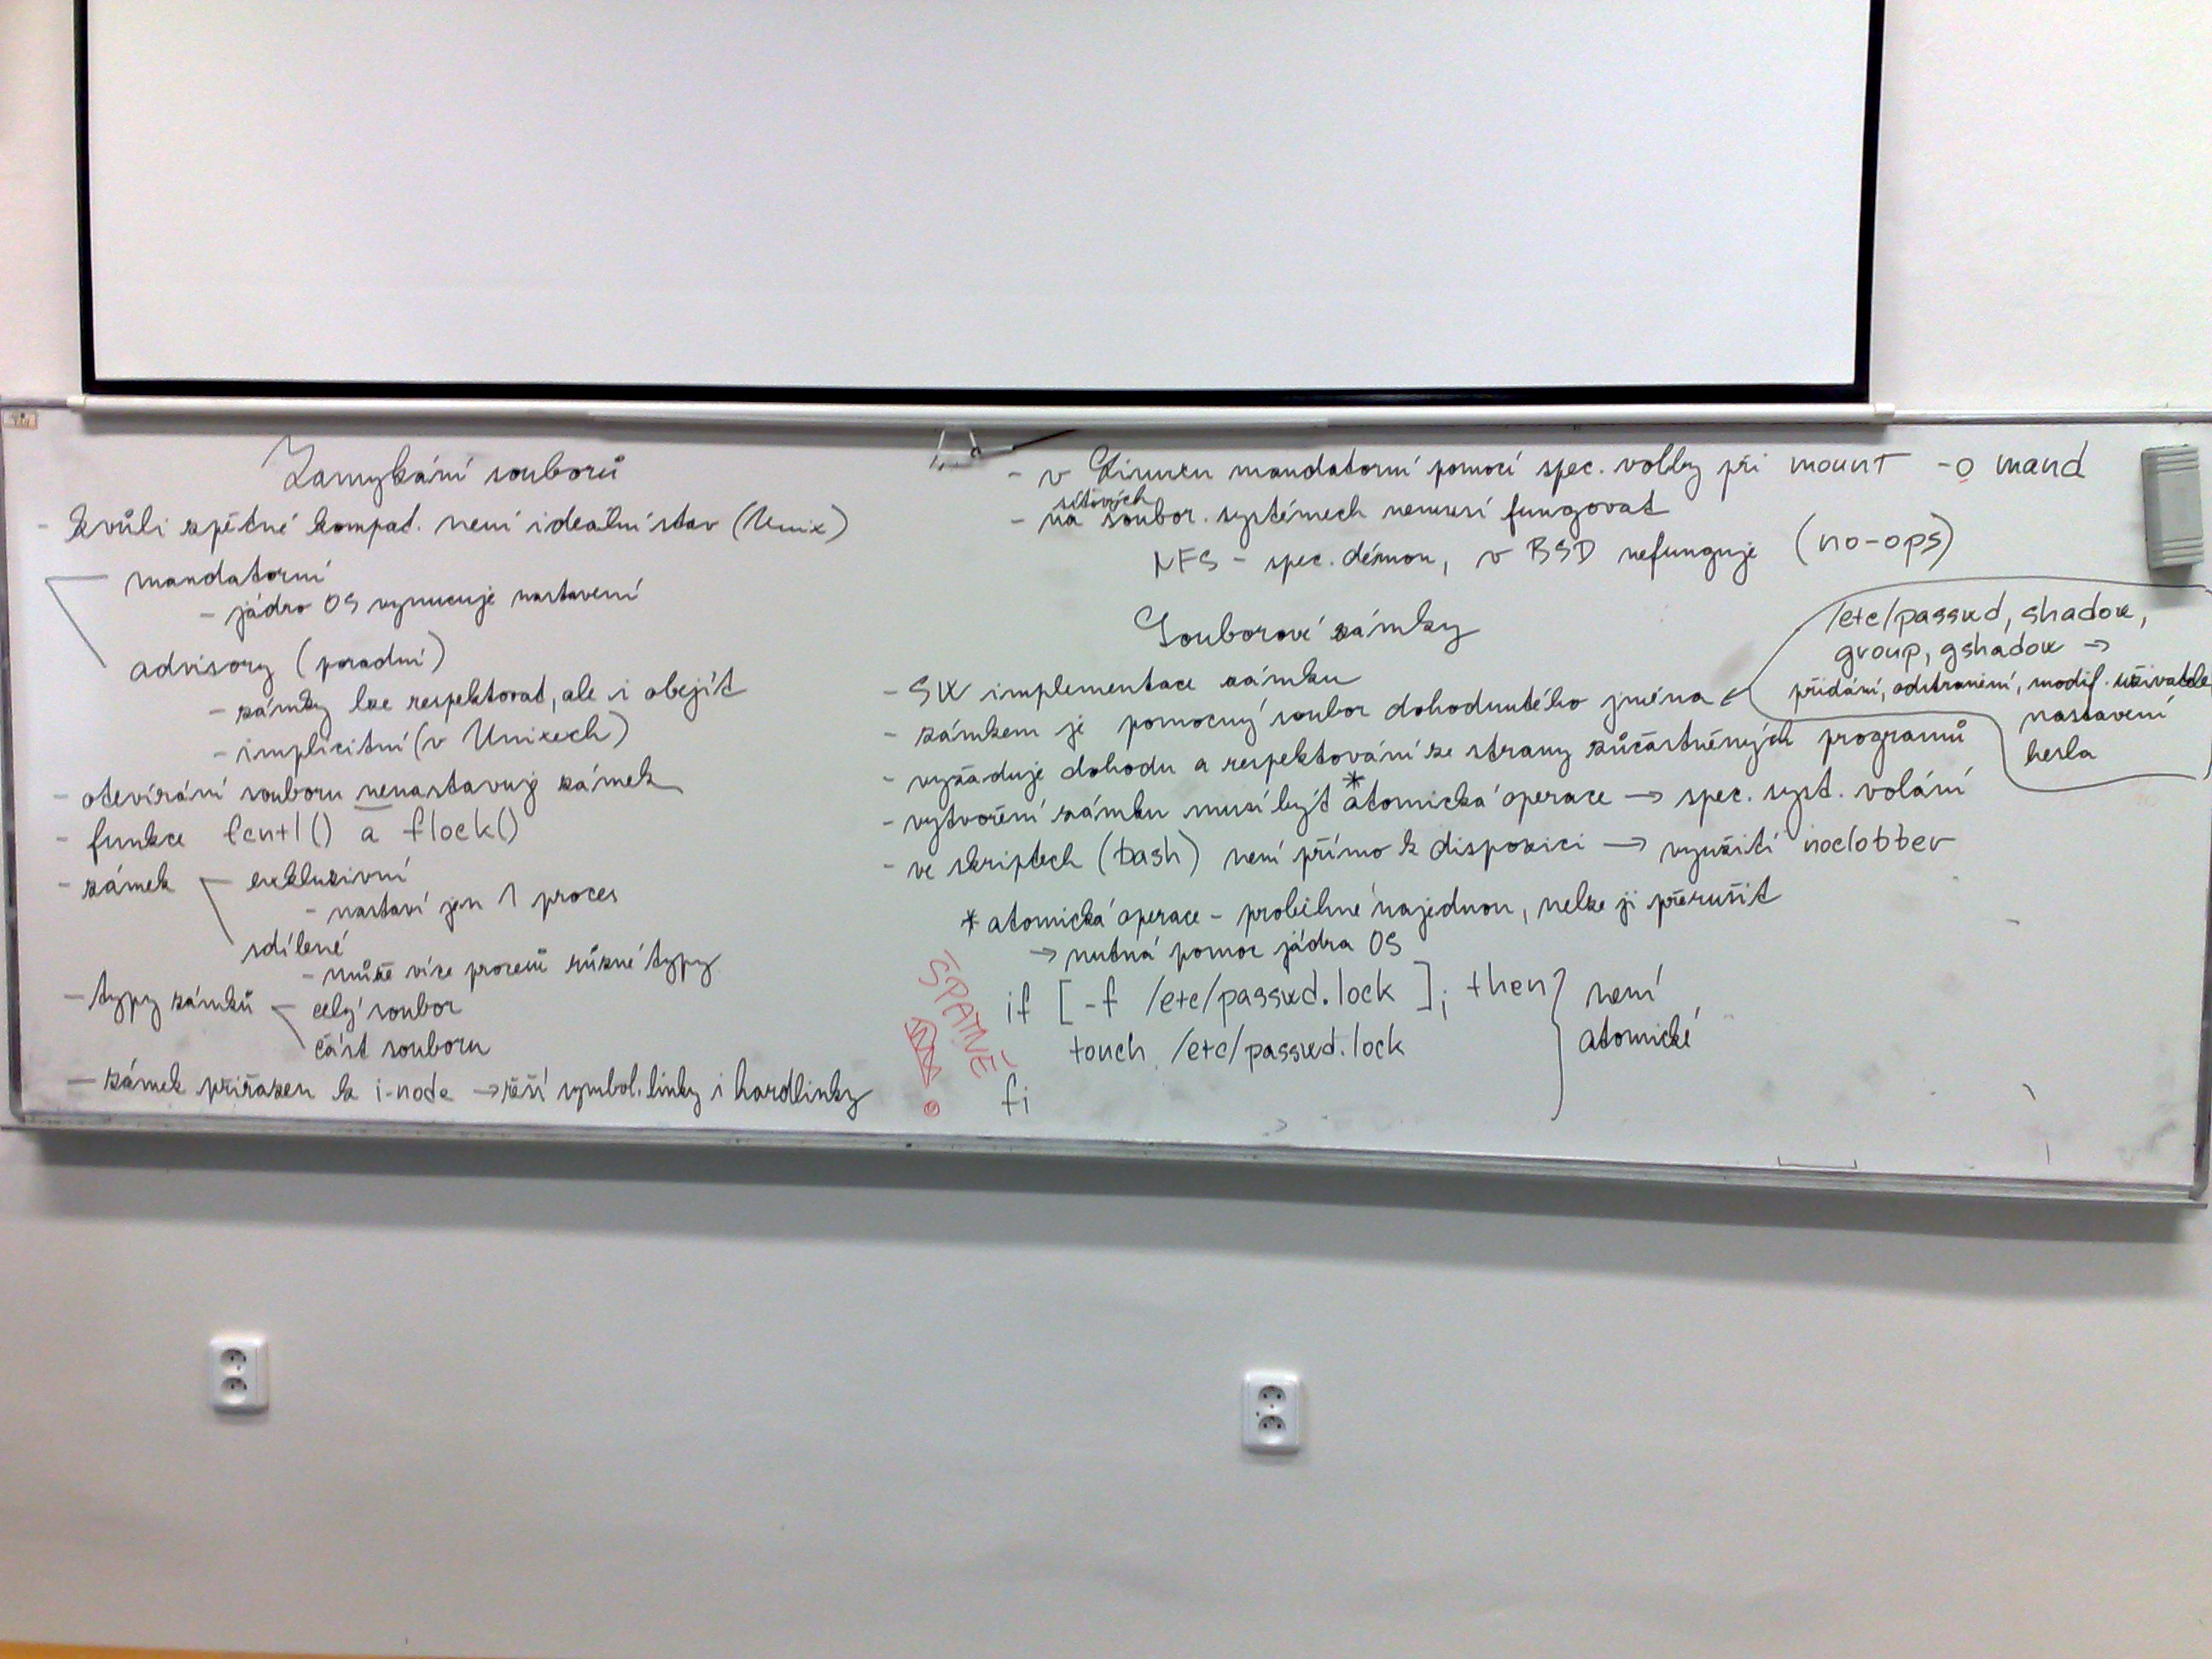 Zamykání souborů
- kvůli zpětné kompat. není ideální stav (Unix)
mandatorní
- jádro OS vynucuje nastavení
advisory (poradní)
- zámky lze respektovat, ale i obejít
- implicitní (v Unixech)
- otevírání souboru nenastavuje zámek
- funkce fcntl() a flock()
- zámek
exkluzivní
- nastaví jen 1 proces
sdílené
- může více procesů různé typy
- typy zámků
celý soubor
část souboru
- zámek přiřazen k i-node → řeší symbol. linky i hardlinky
- v Linuxu mandatorní pomocí spec. volby při mount -o mand
- na síťových soubor. systémech nemusí fungovat
NFS - spec. démon, v BSD nefunguje (no-ops)
Souborové zámky
- SW implementace zámku
- zámkem je pomocný soubor dohodnutého jména
/etc/passwd, shadow,
group, gshadow →
přidání, odstranění, modif. uživatele
nastavení
hesla
- vyžaduje dohodu a respektování ze strany zúčastněných programů
- vytvoření zámku musí být atomická* operace → spec. syst. volání
- ve skriptech (bash) není přímo k dispozici → využití noclobber
* atomická operace - proběhne najednou, nelze ji přerušit
→ nutná pomoc jádra OS
ŠPATNĚ !
if [ -f /etc/passwd.lock ]; then
touch /etc/passwd.lock
fi
není
atomické